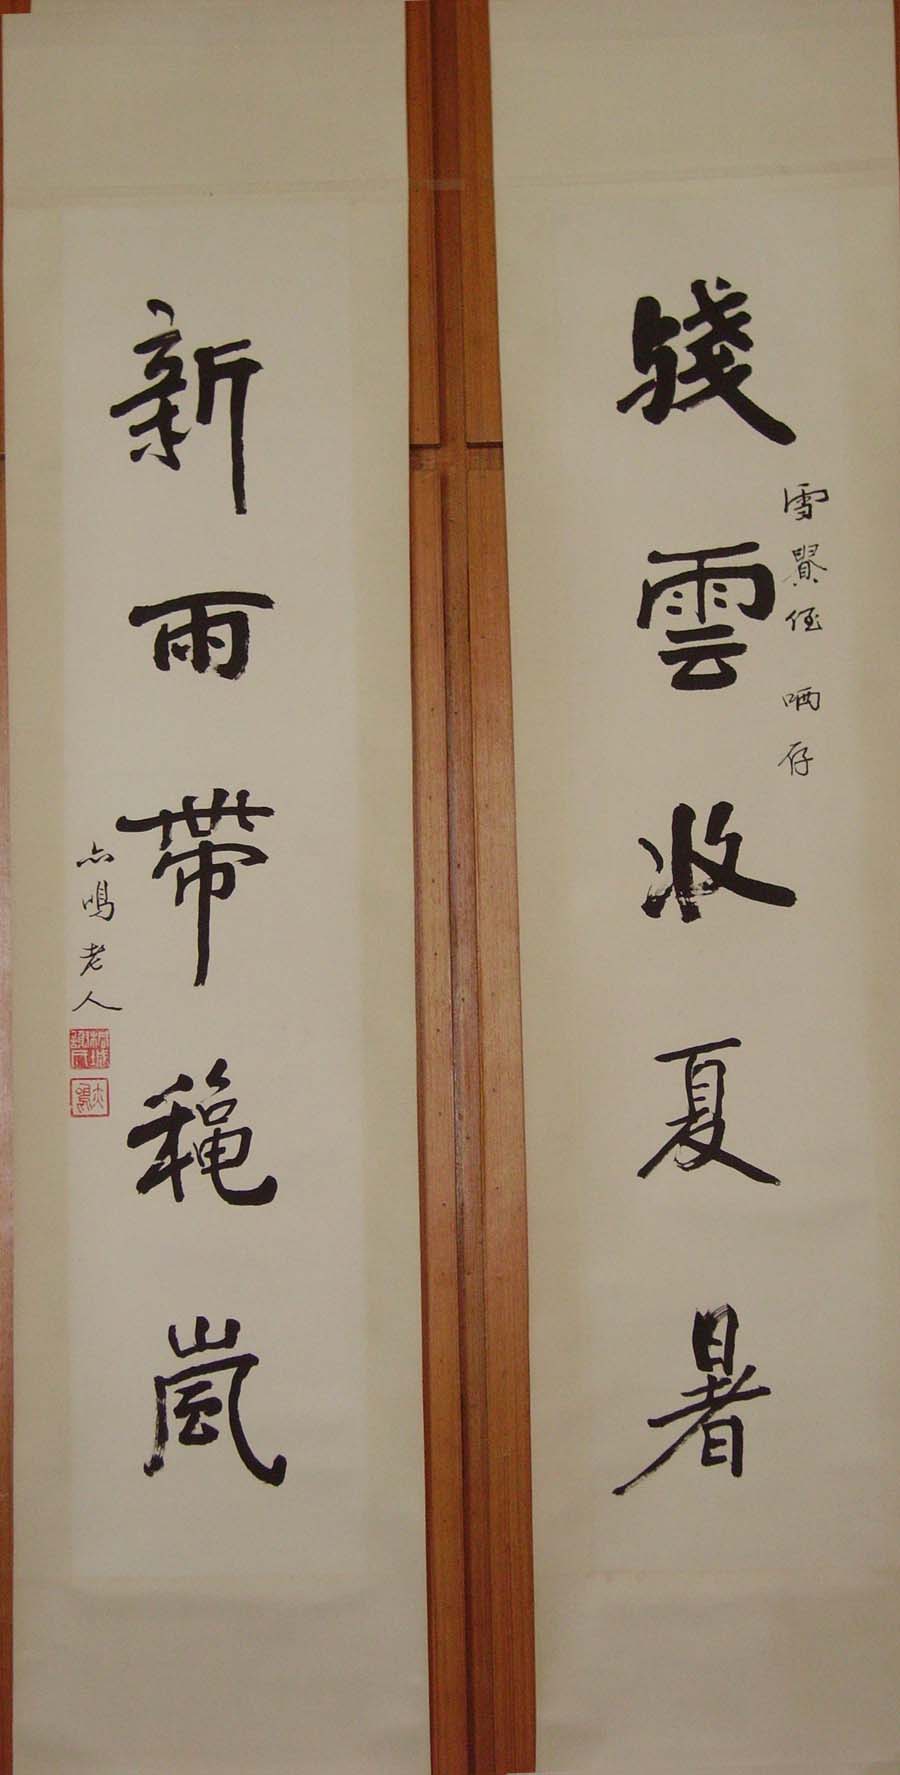 殘雲收夏暑
雪賢侄 哂存
新雨帶穐嵐
亦鳴老人